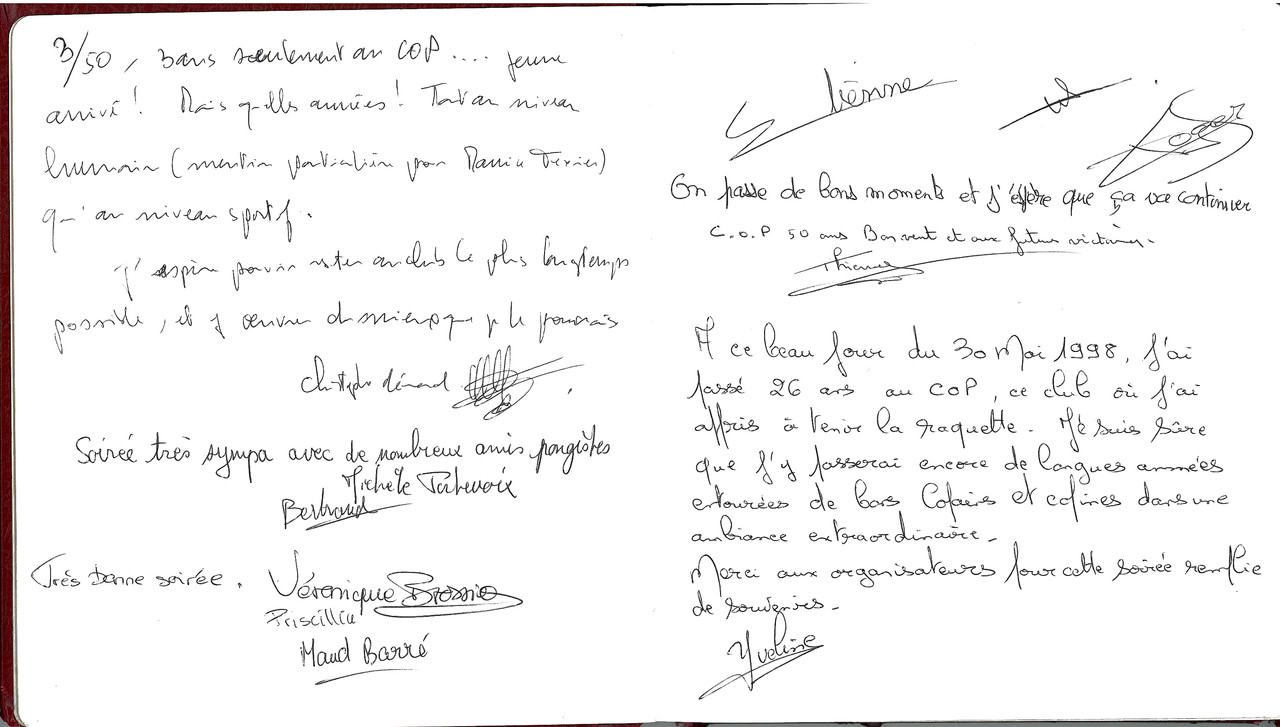 3/50, 3ans seulement au COP .... jeune
arrivé! Mais quelles années! Tant au niveau
humain (mention particulière pour Maurice)
qu'au niveau sportif.
J'espère pouvoir rester au club le plus longtemps
possible, et y œuvrer du mieux que je le pourrais
Soirée très sympa avec de nombreux amis pongistes
Michèle
Bertrand
Très bonne soirée. Véronique
Priscillia
Maud Barré
Etienne
Roger
On passe de bons moments et j'éspère que ça va continuer
C.O.P 50 ans Bon vent et aux futur victoires.
A ce beau jour du 30 Mai 1998, j'ai
passé 26 ans au COP, ce club où j'ai
appris à tenir la raquette. Je suis sûre
que j'y passerai encore de longues années
entourées de bons Copains et copines dans une
ambiance extraordinaire.
Merci aux organisateurs pour cette soirée remplie
de souvenirs.
Yveline